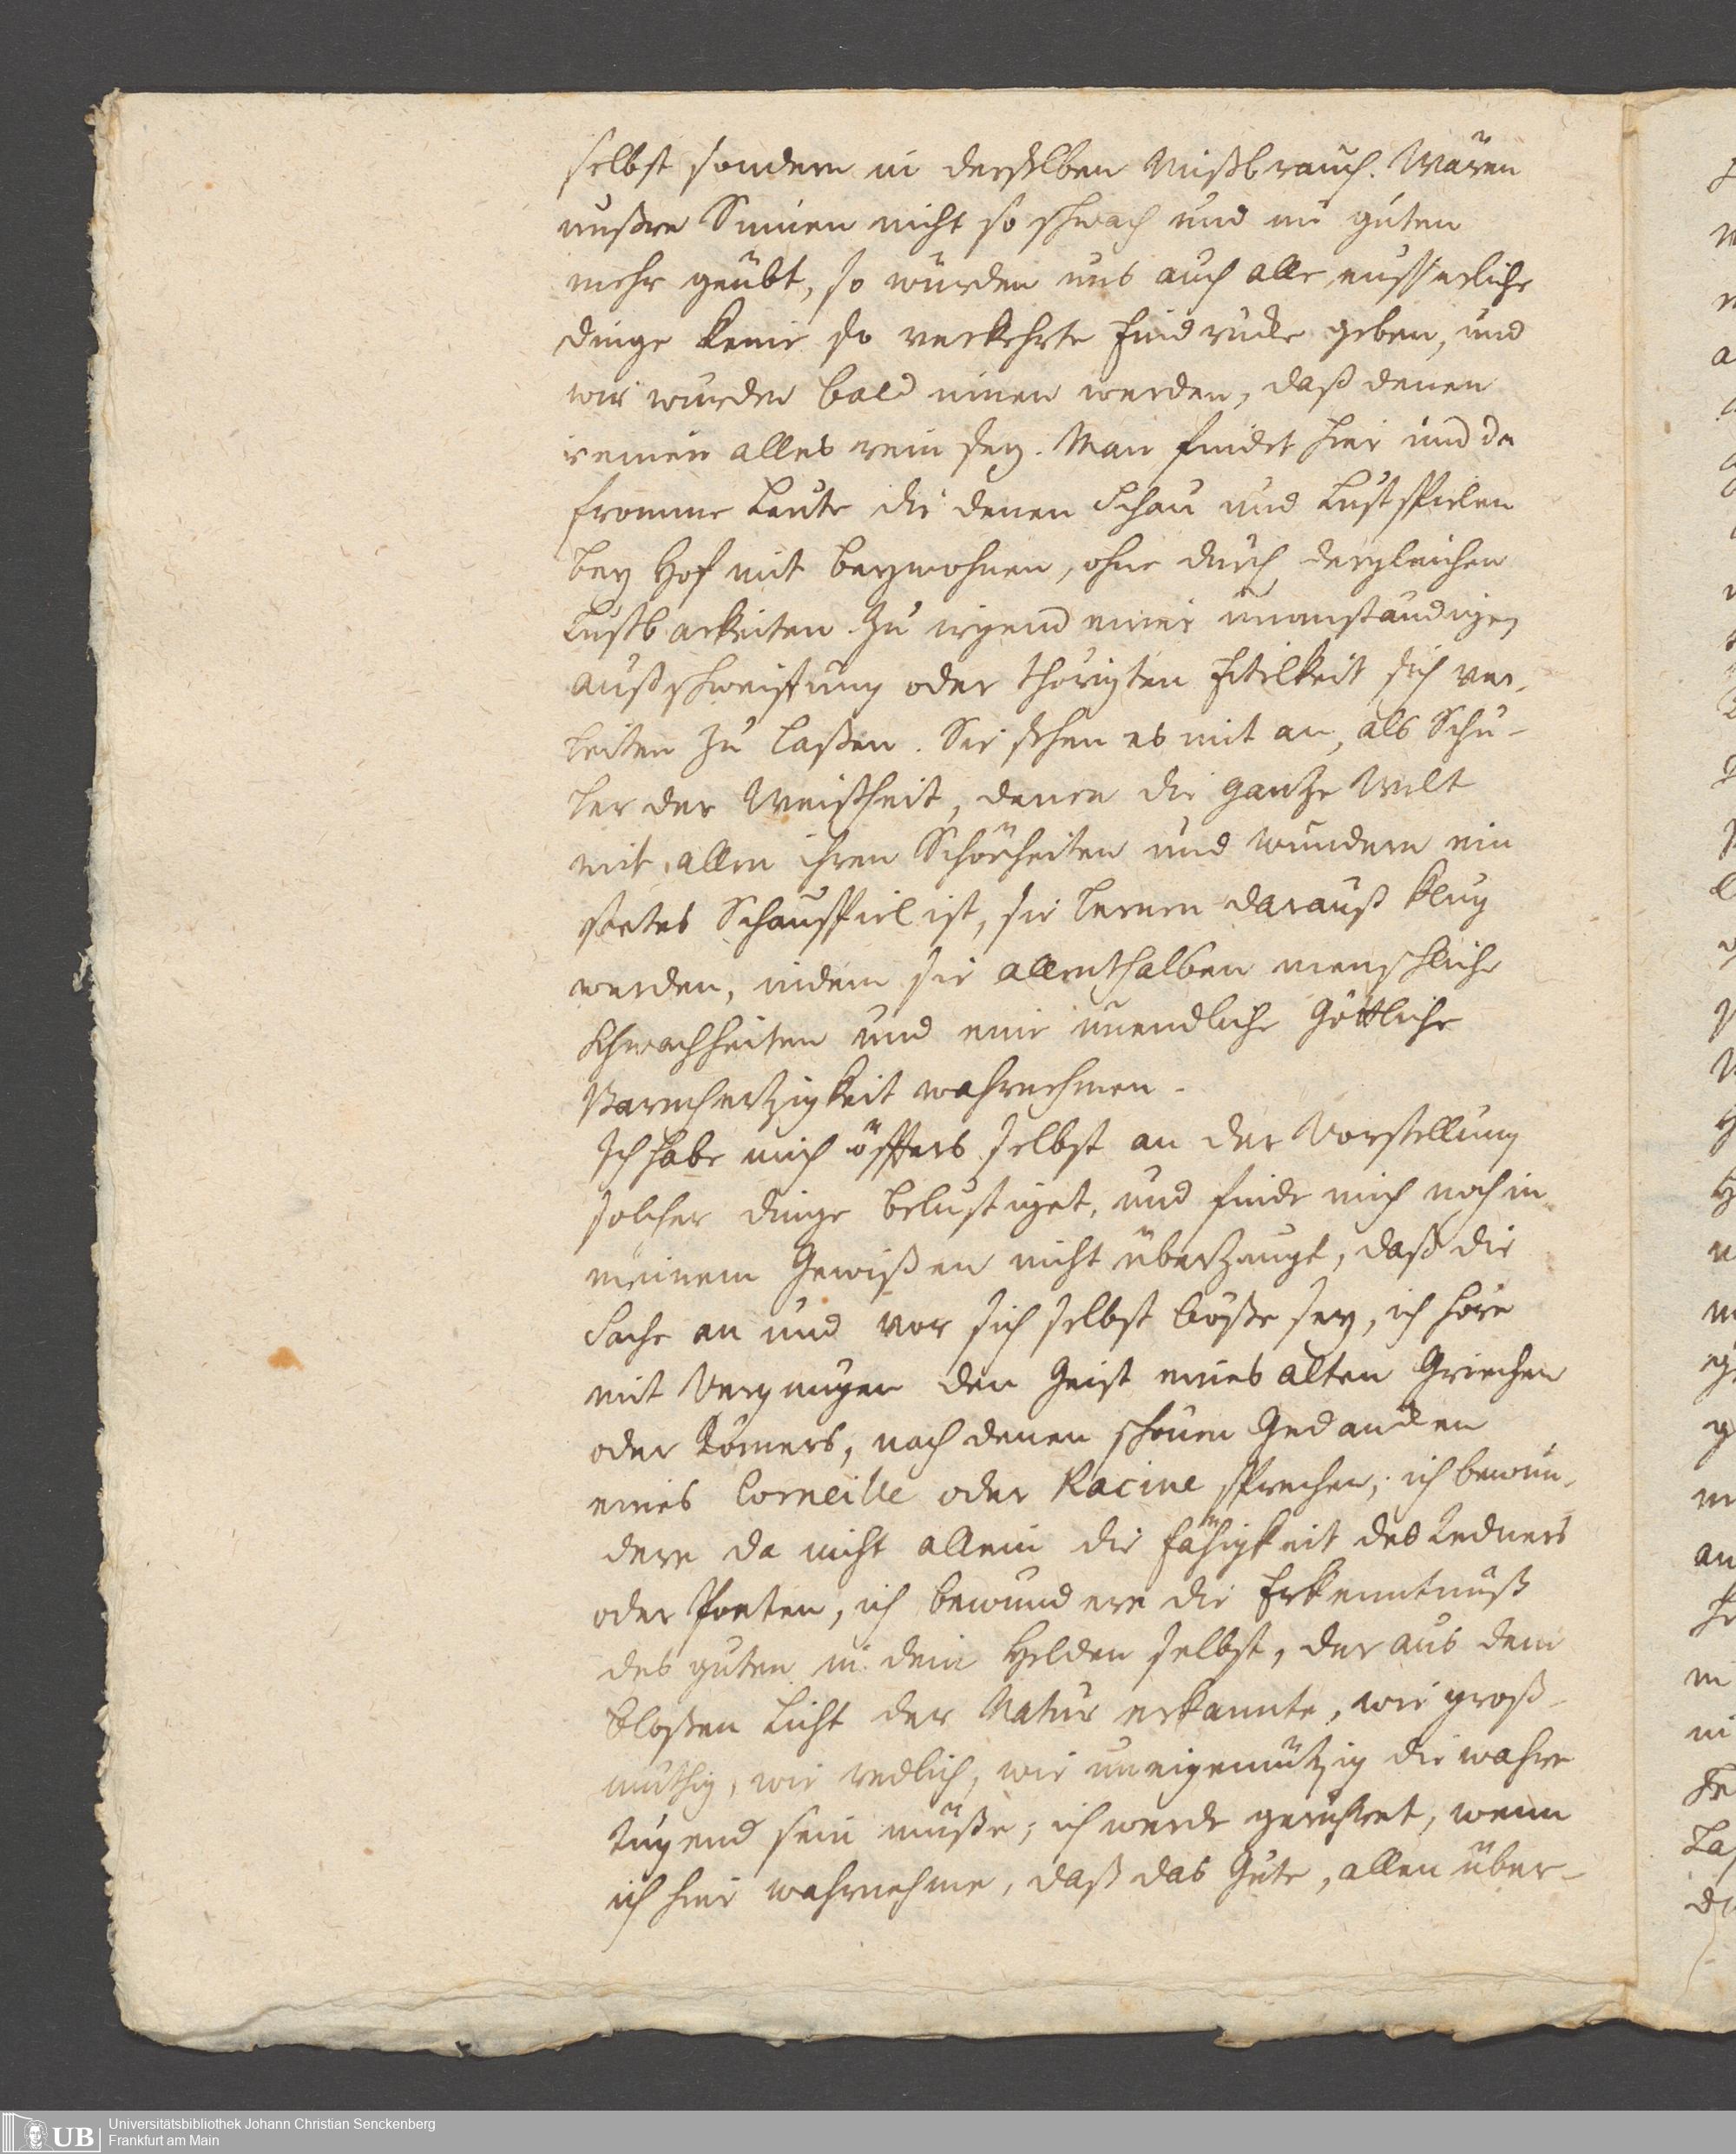 selbst sondern in derselben Mißbrauch. Wären
unßre Sinnen nicht so schwach und im guten
mehr geübt, so würden uns auch alle eusserliche
dinge keine so verkehrte Eindrücke geben, und
wir wurden bald innen werden, daß denen
reinen alles rein sey. Man findet hier und da
fromme Leute die denen Schau und Lustspielen
bey Hof mit beywohnen, ohne durch dergleichen
Lustbarkeiten zu irgend einer unanständigen
außschweiffung oder thörigten Eitelkeit sich ver-
leiten zu laßen. Sie sehen es mit an, als Schü-
ler der Weißheit, denen die gantze Welt
mit allen ihren Schönheiten und wundern ein
stetes Schauspiel ist, sie lernen darauß klug
werden, indem sie allenthalben menschliche
Schwachheiten und eine unendliche Göttliche
Barmhertzigkeit wahrnehmen.
Ich habe mich öffters selbst an der Vorstellung
solcher dinge belustiget, und finde mich noch in
meinem Gewißen nicht überzeugt, daß die
Sache an und vor sich selbst böße sey, ich höre
mit Vergnugen den Geist eines alten Griechen
oder Römers, nach denen schönen Gedancken
eines Corneille oder Racine sprechen; ich bewun-
dere da nicht allein die Fähigkeit des Redners
oder Poeten, ich bewundere die Erkenntnuß
des guten in dem Helden selbst, der aus dem
bloßen Licht der Natur erkannte, wie groß-
müthig, wie redlich, wie uneigennützig die wahre
Tugend sein müße; ich werde gerühret, wenn
ich hier wahrnehme, daß das Gute, allen über-
Universitätsbibliothek Johann Christian Senckenberg
Frankfurt am Main
UB